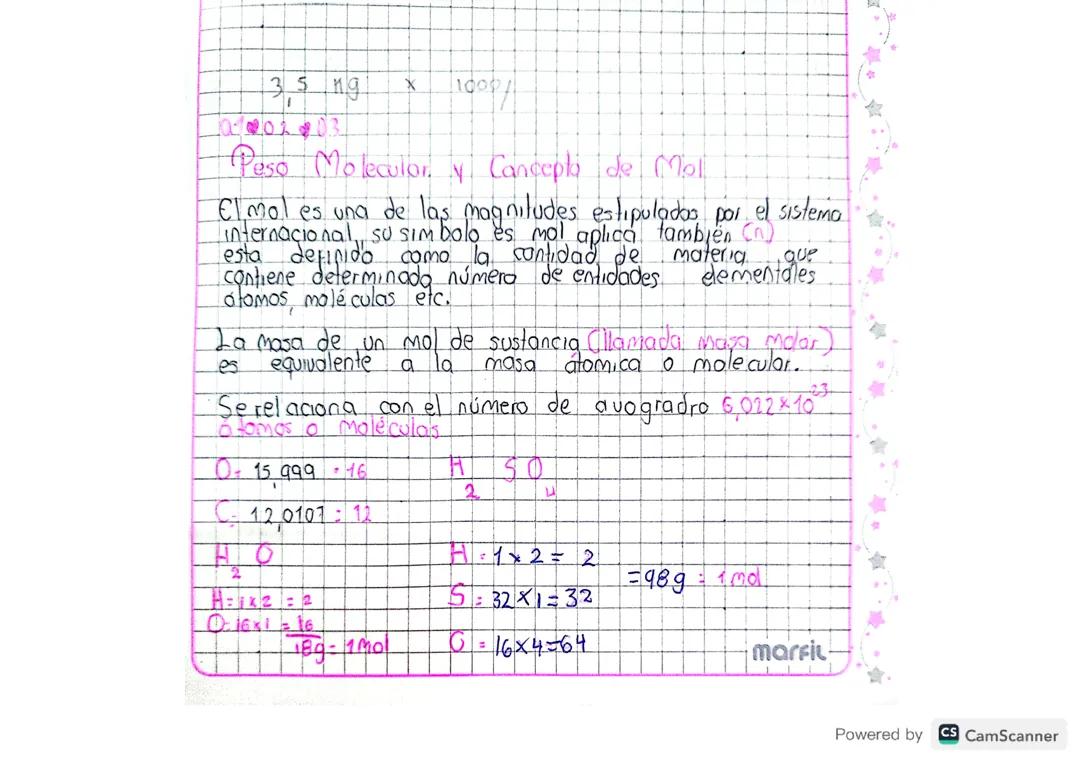 3,5 ng x 100%
01 02 03
Peso Molecular y Concepto de Mol
El mol es una de las magnitudes estipuladas por el sistema
internacional, su simbolo es mol aplica también (n)
esta definido como la cantidad de materia que
contiene determinada número de entidades elementales
átomos, moléculas etc.
La masa de un mol de sustancia (llamada masa molar)
es equivalente a la masa átomica o molecular.
Se relaciona con el número de avogradro 6,022x10²³
átomos o moléculas
O= 15,999 = 16
C= 12,0107 = 12
H₂O
H=1x2 = 2
O=16x1 = 16
18g=1mol
H₂SO₄
H=1x2= 2
S=32x1=32
O=16x4=64
=98g=1mol
marfil
Powered by CS CamScanner